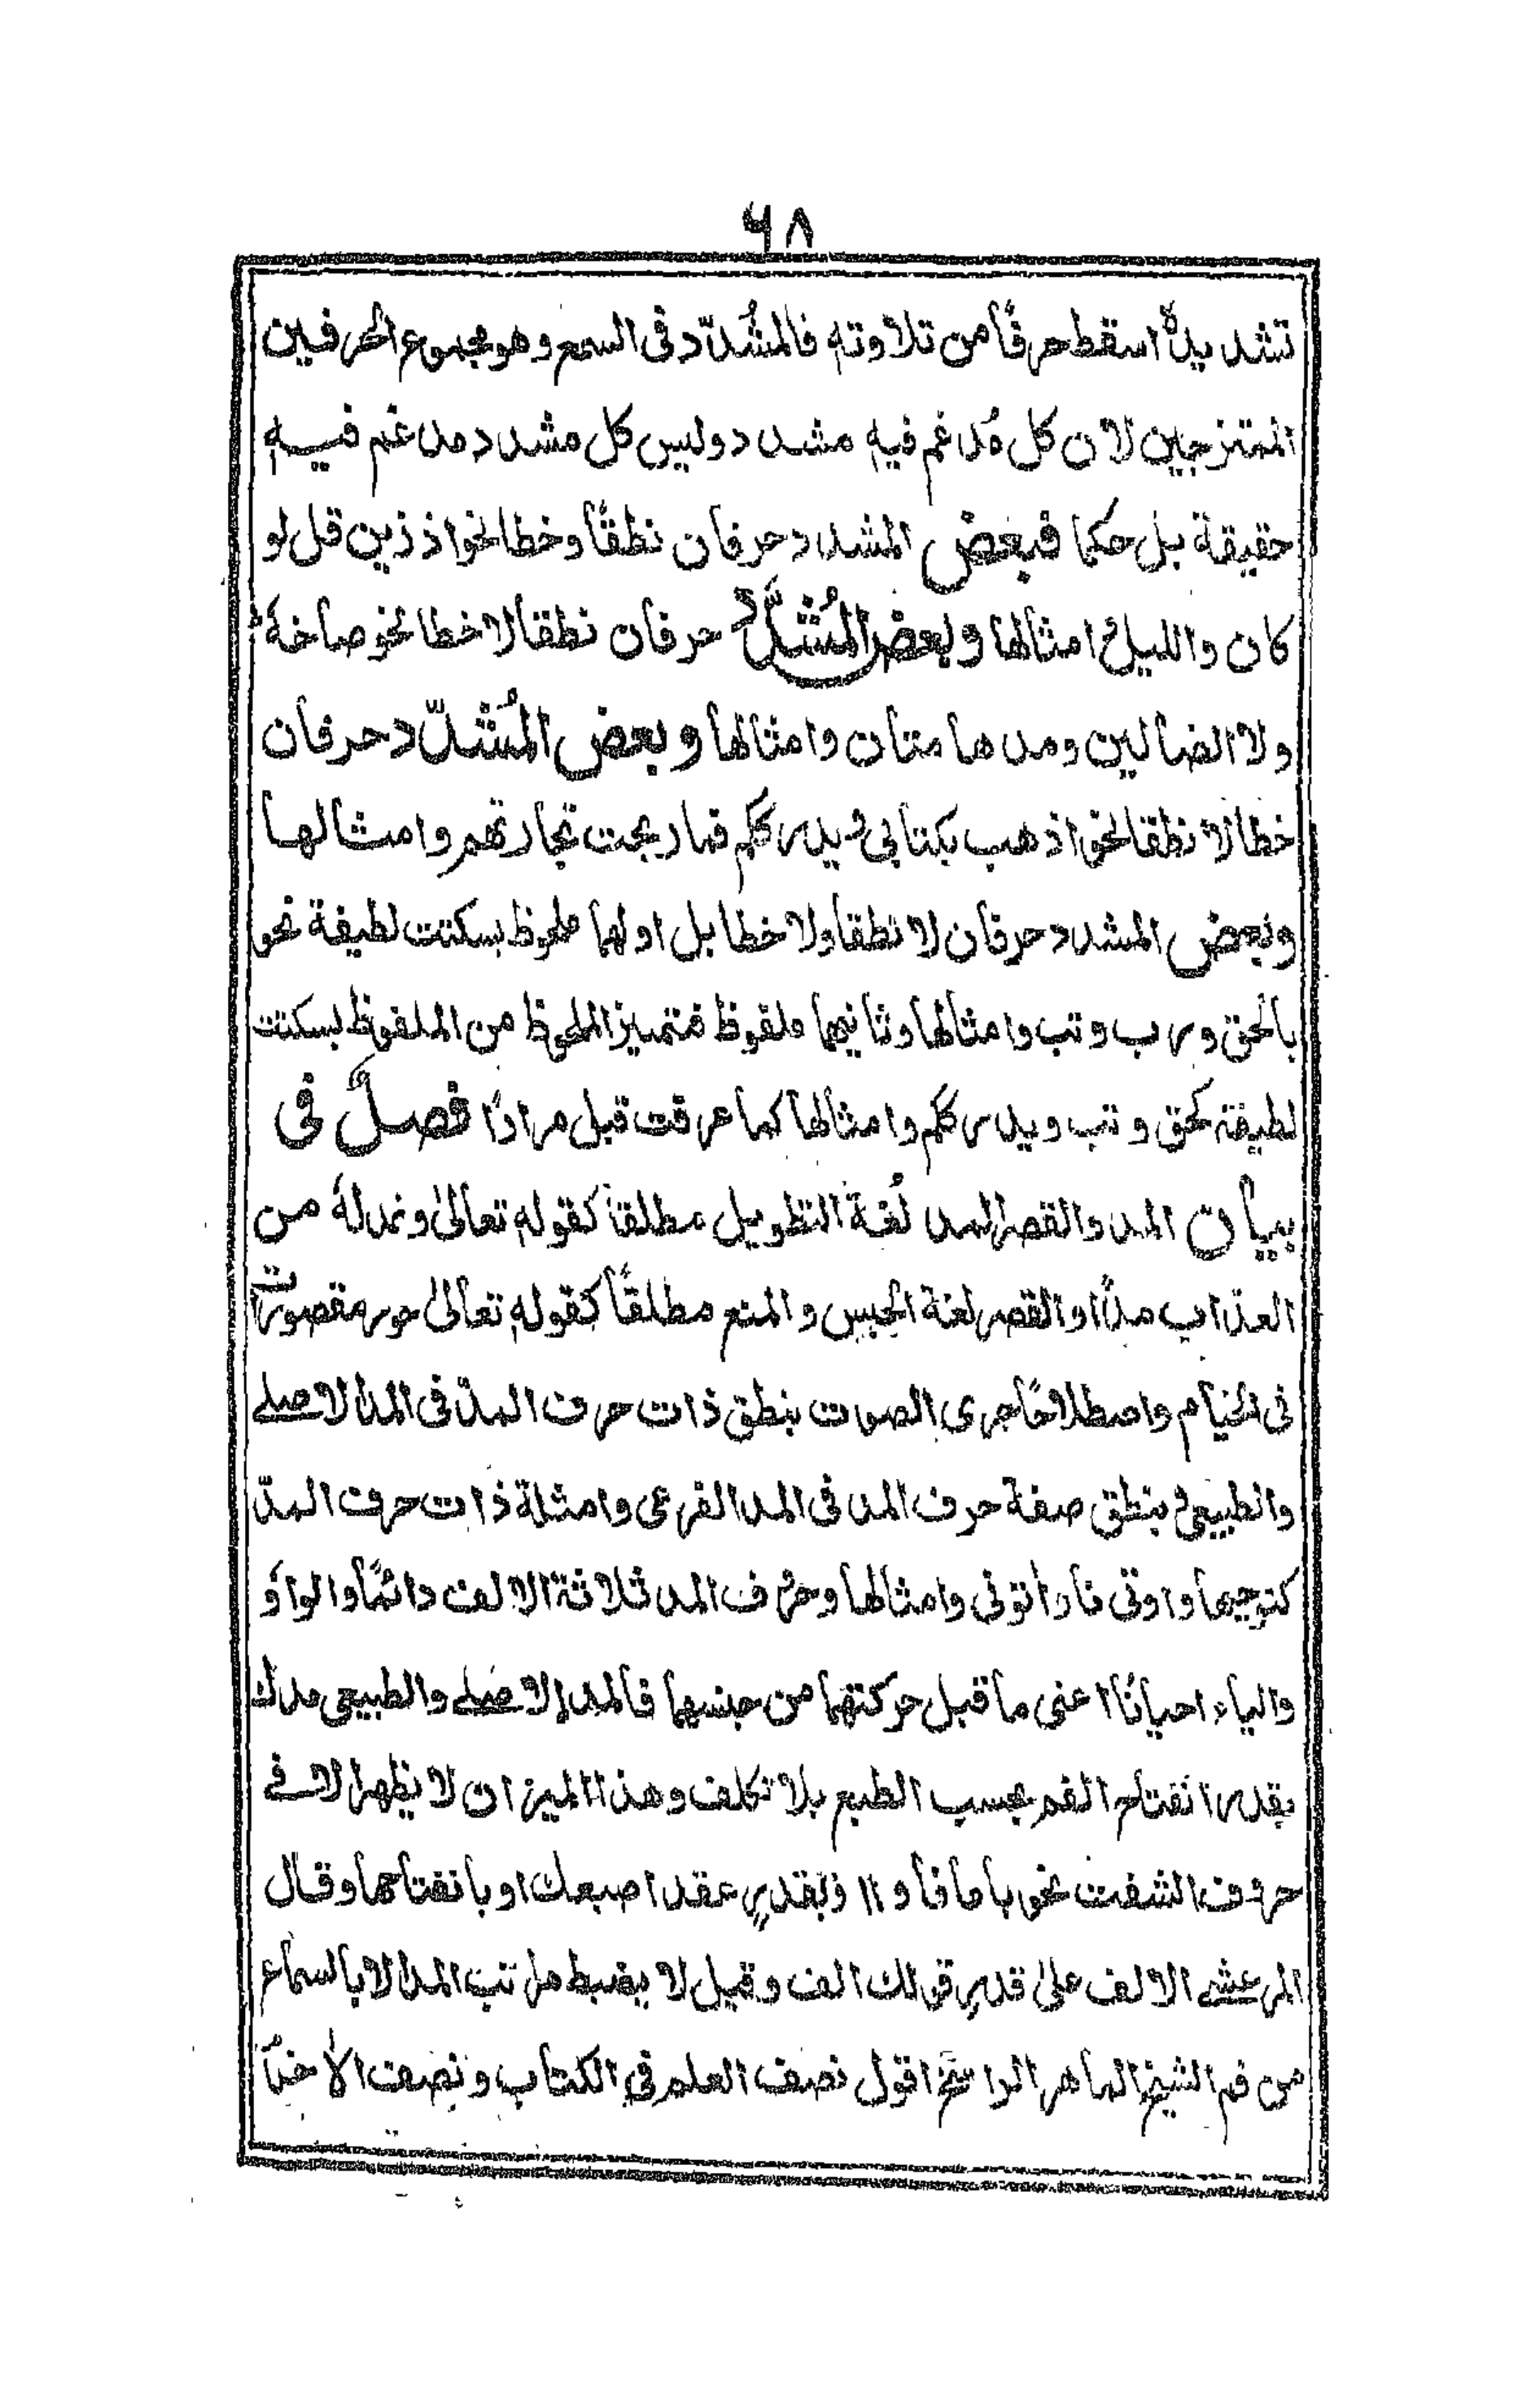 ٦٨
تشديداً اسقط حرفًا من تلاوتهِ فالمُشدّد فى السمع وهو مجموع الحرفين
الممتزجين لان كل مُدغم فيهِ مشدد وليس كل مشدد مدغم فيهِ
حقيقة بل حكما فبعض المشدد حرفان نطقًا وخطا نحو اذ ذين قل لو
كان والليل وامثالها وبعض المُشدّد حرفان نطقا لا خطا نحو صاخة
ولا الضالين ومدهامتان وامثالها وبعض المُشدّد حرفان
خطا لا نطقا نحو اذهب بكتابى ويدرككم فما ربحت تجارتهم وامثالها
وبعض المشدد حرفان لا نطقا ولا خطا بل اولهما ملحوظ بسكتت لطيفة نحو
بالحق ورب وتب وامثالها وثانيهما ملفوظ فتميز الملحوظ من الملفوظ بسكتت
لطيفة كحق وتب ويدرككم وامثالها كما عرفت قبل مرارًا فصلٌ فى
بيان المد والقصر المد لُغة التطويل مطلقًا كقولهِ تعالىٰ ونمد لهٗ من
العذاب مدًّا والقصر لغة الحبس والمنع مطلقًا كقولهِ تعالىٰ حور مقصورات
فى الخيام واصطلاحًا جرى الصوت بنطق ذات حرف المدّ فى المد الاصلے
والطبيعى وبنطق صفة حرف المد فى المد الفرعى وامثلة ذات حرف المدّ
كنوحيها واوتى نادا توفى وامثالها وحرف المد ثلاثة الالف دائمًا والواو
والياء احيانًا اعنى ما قبل حركتهما من جنسهما فالمد الاصلے والطبيعى مدك
بقدر انفتاح الفم بحسب الطبع بلا تكلف وهذا الميزان لا يظهر الا فے
حروف الشفت نحو با ما فا وا او بقدر عقد اصبعك او بانفتاحها وقال
المرعشے الالف علىٰ قدر قولك الف وقيل لا يضبط مراتب المد الا بالسماع
من فم الشيخ الماهر الراسخ اقول نصف العلم فى الكتاب ونصف الاٰخر